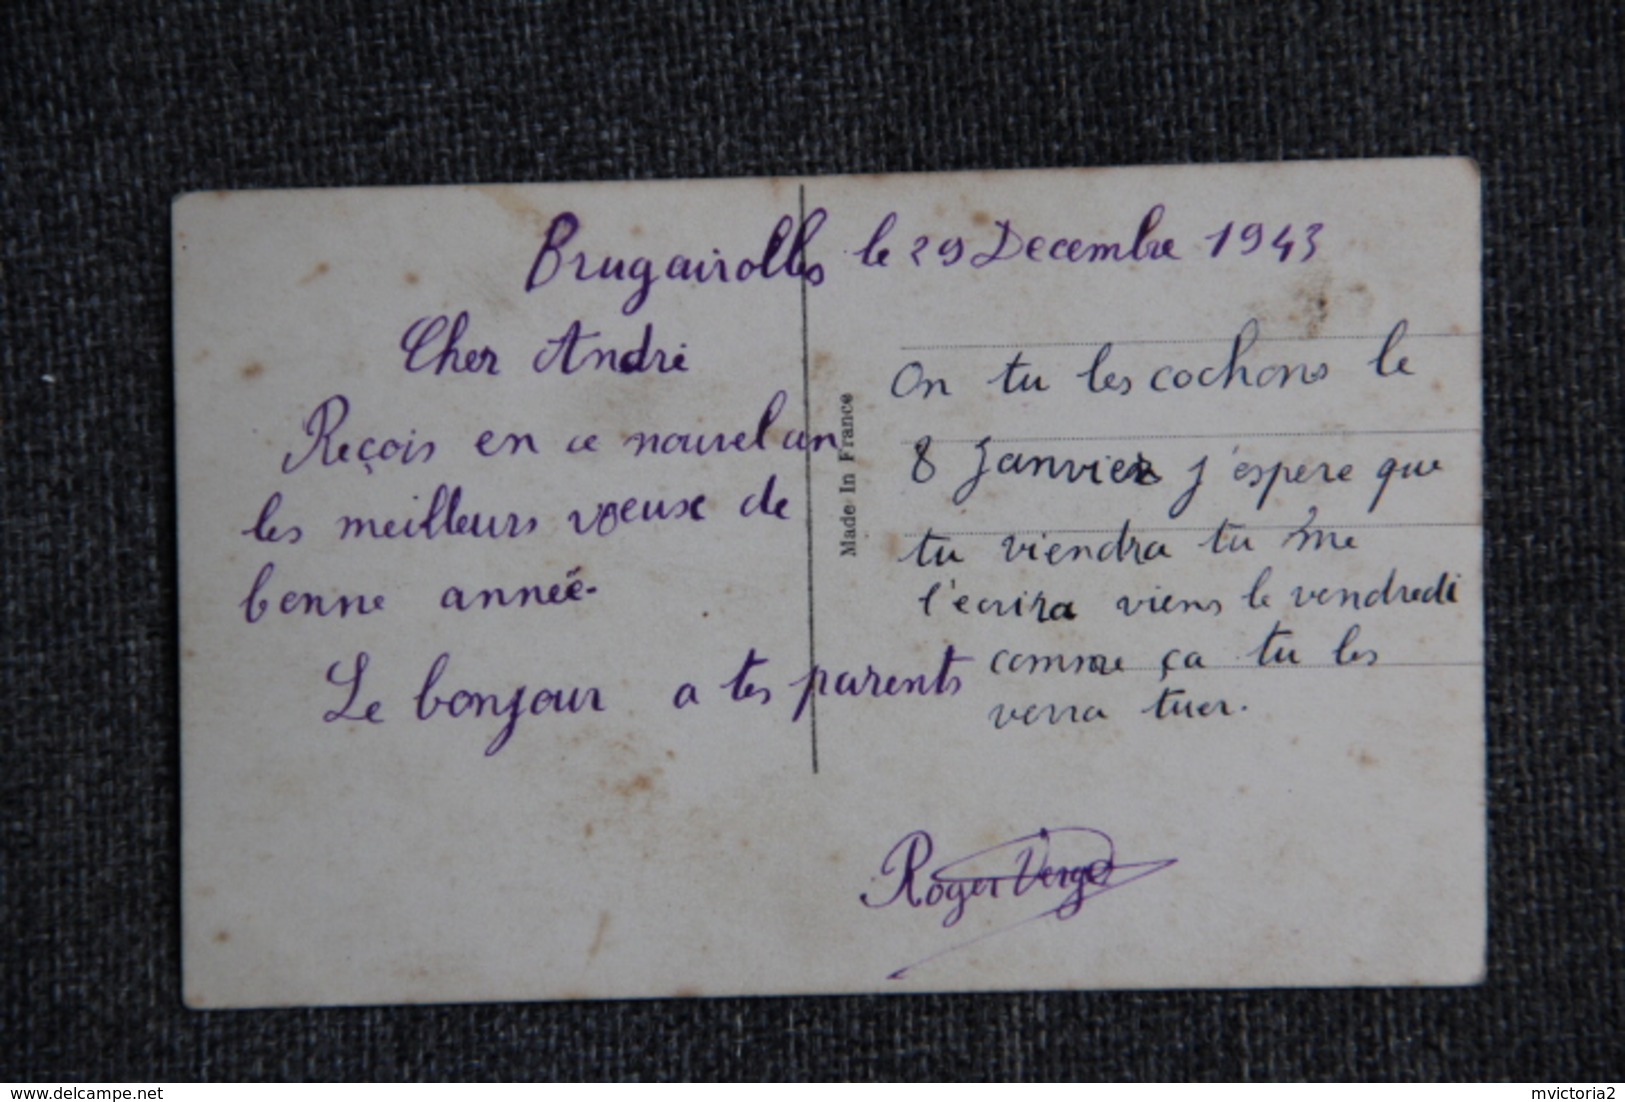 Brugairolles le 29 Decembre 1943
Cher André
Reçois en ce nouvel an
les meilleurs voeux de
bonne année.
Le bonjour a tes parents
On tu les cochons le
8 Janvier j'espere que
tu viendra tu me
l'écrira viens le vendredi
comme ça tu les
verra tuer.
Roger
Made In France
delcampe.net
mvictoria2